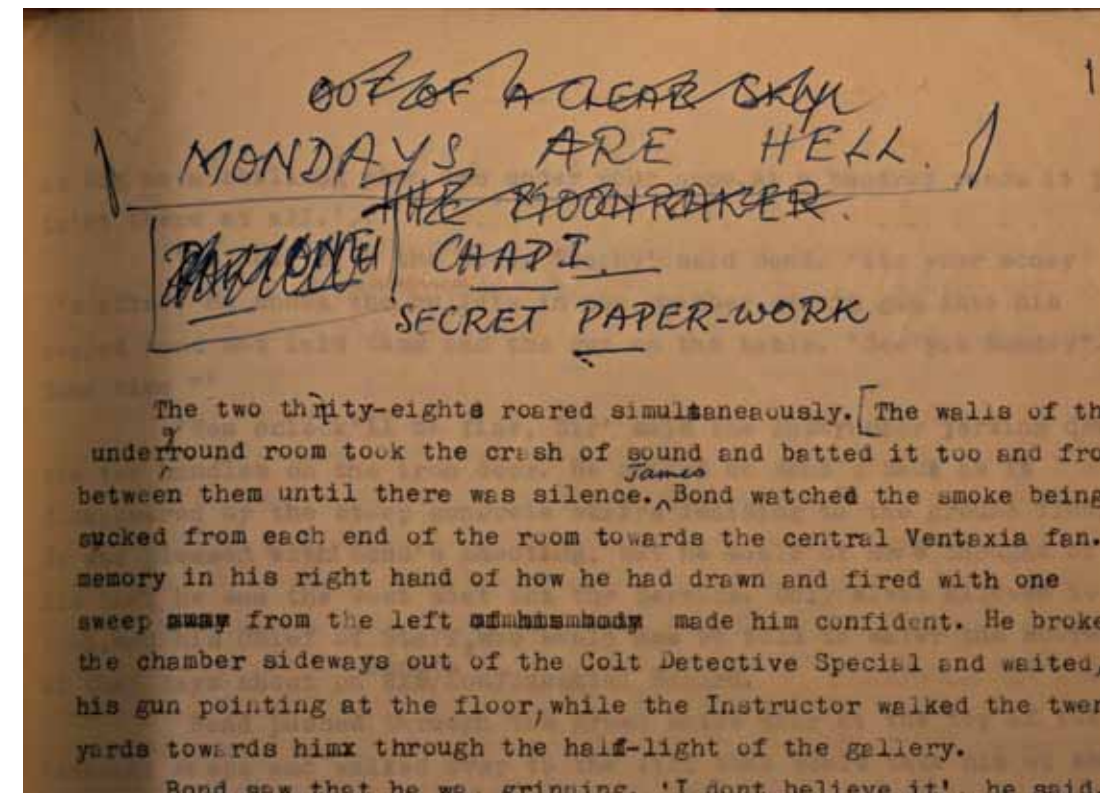 1
OUT OF A CLEAR SKY
MONDAYS ARE HELL.
THE MOONRAKER.
PART ONE CHAP I.
SECRET PAPER-WORK
The two thrity-eights roared simultaneaously. [The walls of th
underground room took the crash of sound and batted it too and fro
between them until there was silence. James Bond watched the smoke being
sucked from each end of the room towards the central Ventaxia fan.
memory in his right hand of how he had drawn and fired with one
sweep away from the left of his body made him confident. He broke
the chamber sideways out of the Colt Detective Special and waited,
his gun pointing at the floor, while the Instructor walked the twen
yards towards himx through the half-light of the gallery.
Bond saw that he was grinning. 'I dont believe it', he said.